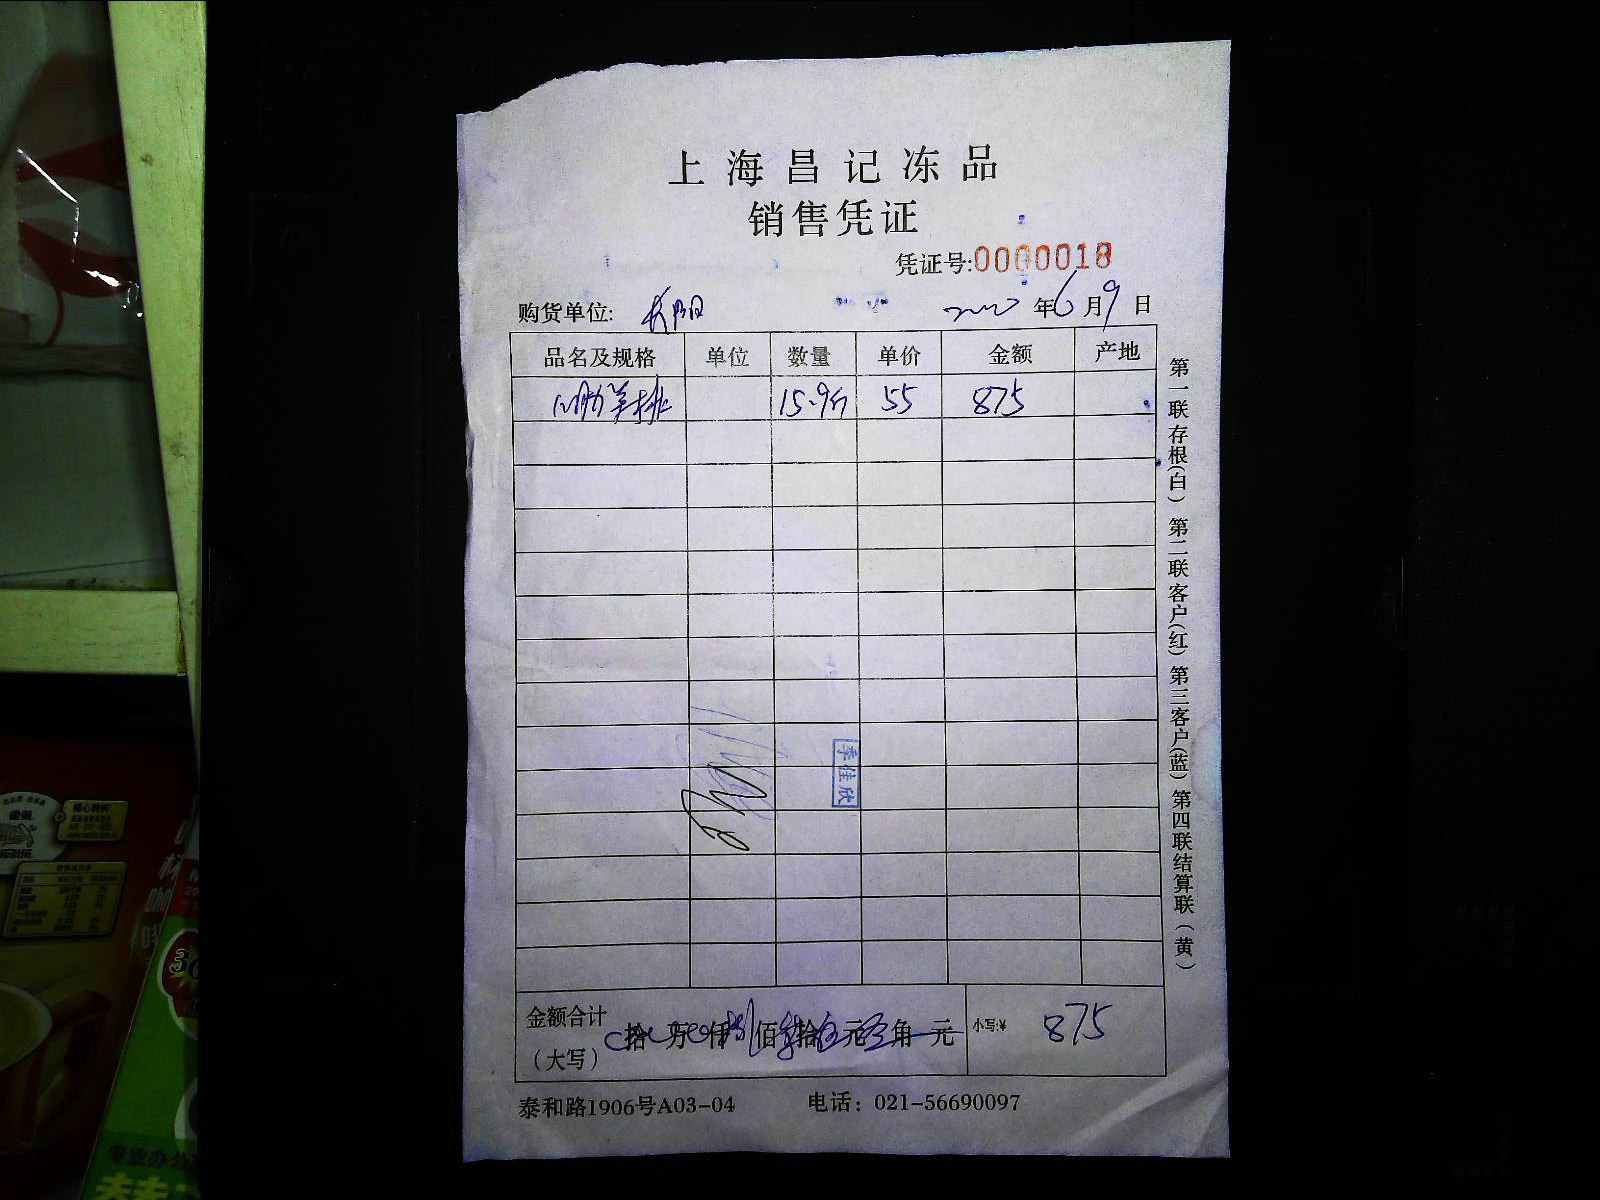 上海昌记冻品
销售凭证
凭证号:0000018
购货单位: 年6月9日
品名及规格 单位 数量 单价 金额 产地
羊排 15.9斤 55 875
季佳欣
金额合计 拾 万 仟 佰 拾 元 角 元 小写:¥ 875
(大写)
泰和路1906号A03-04 电话: 021-56690097
第一联存根(白) 第二联客户(红) 第三客户(蓝) 第四联结算联(黄)
专业办公